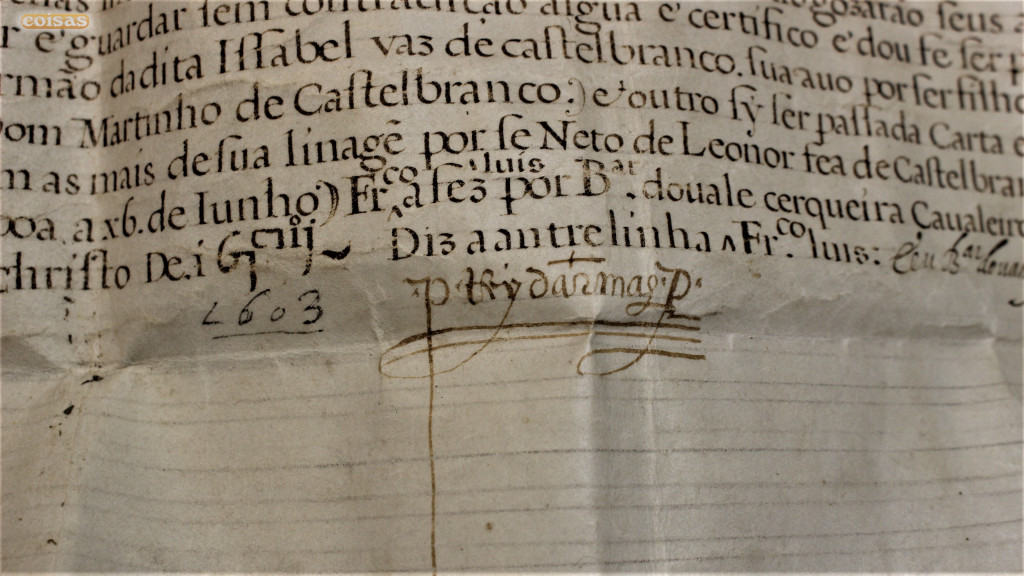 coisas
r e guardar sem contradição algua e certifico e dou fe ser
rmão da dita Issabel vaz de castelbranco. sua auo por ser filho
Dom Martinho de Castelbranco:) e outro sy ser passada Carta
m as mais de sua linagẽ por se Neto de Leonor fca de Castelbran
boa. a xb. de Iunho) Fr.co luis a fez por B.ar douale cerqueira Caualeiro
christo De. Diz a antrelinha ʌ Fr.co luis:
1603